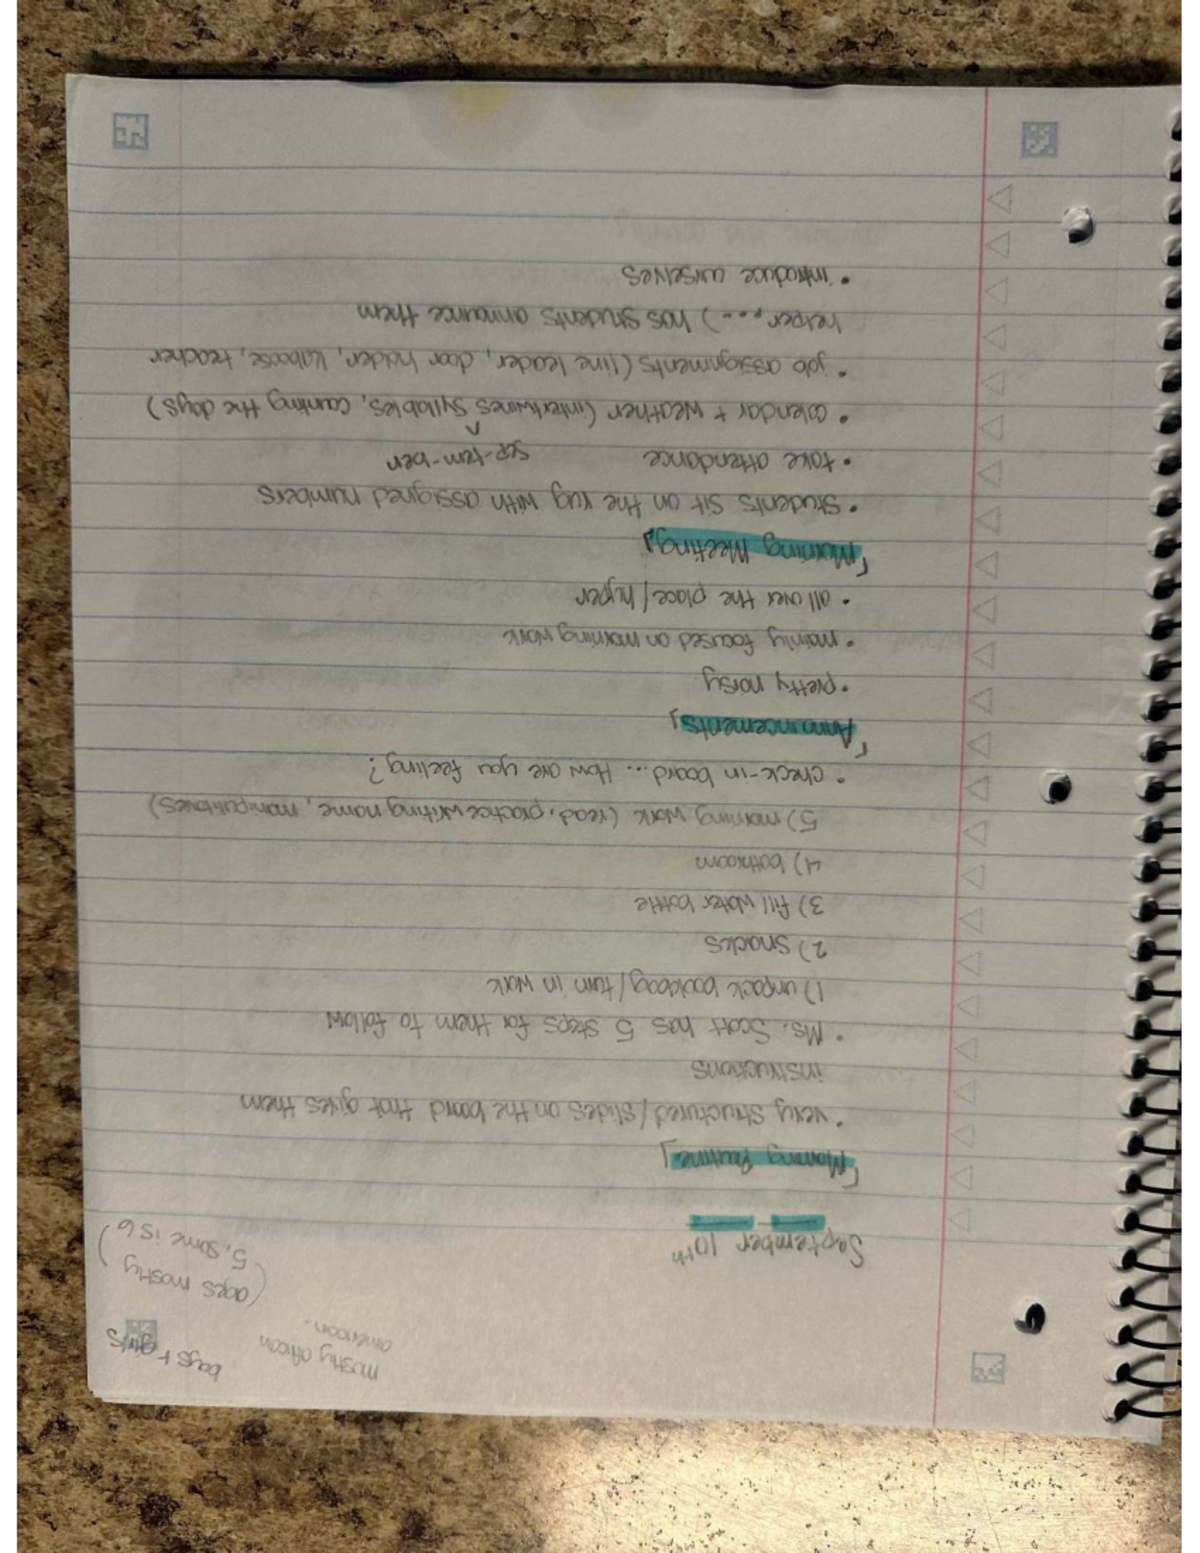 mostly african
american.
boys + girls
(ages mostly
5, some is 6)
September 10th
「Morning Routine」
• very structured/slides on the board that gives them
instructions
• Ms. Scott has 5 steps for them to follow
1) unpack bookbag/turn in work
2) snacks
3) fill water bottle
4) bathroom
5) morning work (read, practice writing name, manipulatives)
• check-in board... How are you feeling?
「Announcements」
• pretty noisy
• mainly focused on morning work
• all over the place/hyper
「Morning Meeting」
• students sit on the rug with assigned numbers
• take attendance sep-tem-ber
• calendar + weather (intertwines syllables, counting the days)
• job assignments (line leader, door holder, kaboose, teacher
helper,...) has students announce them
• introduce ourselves